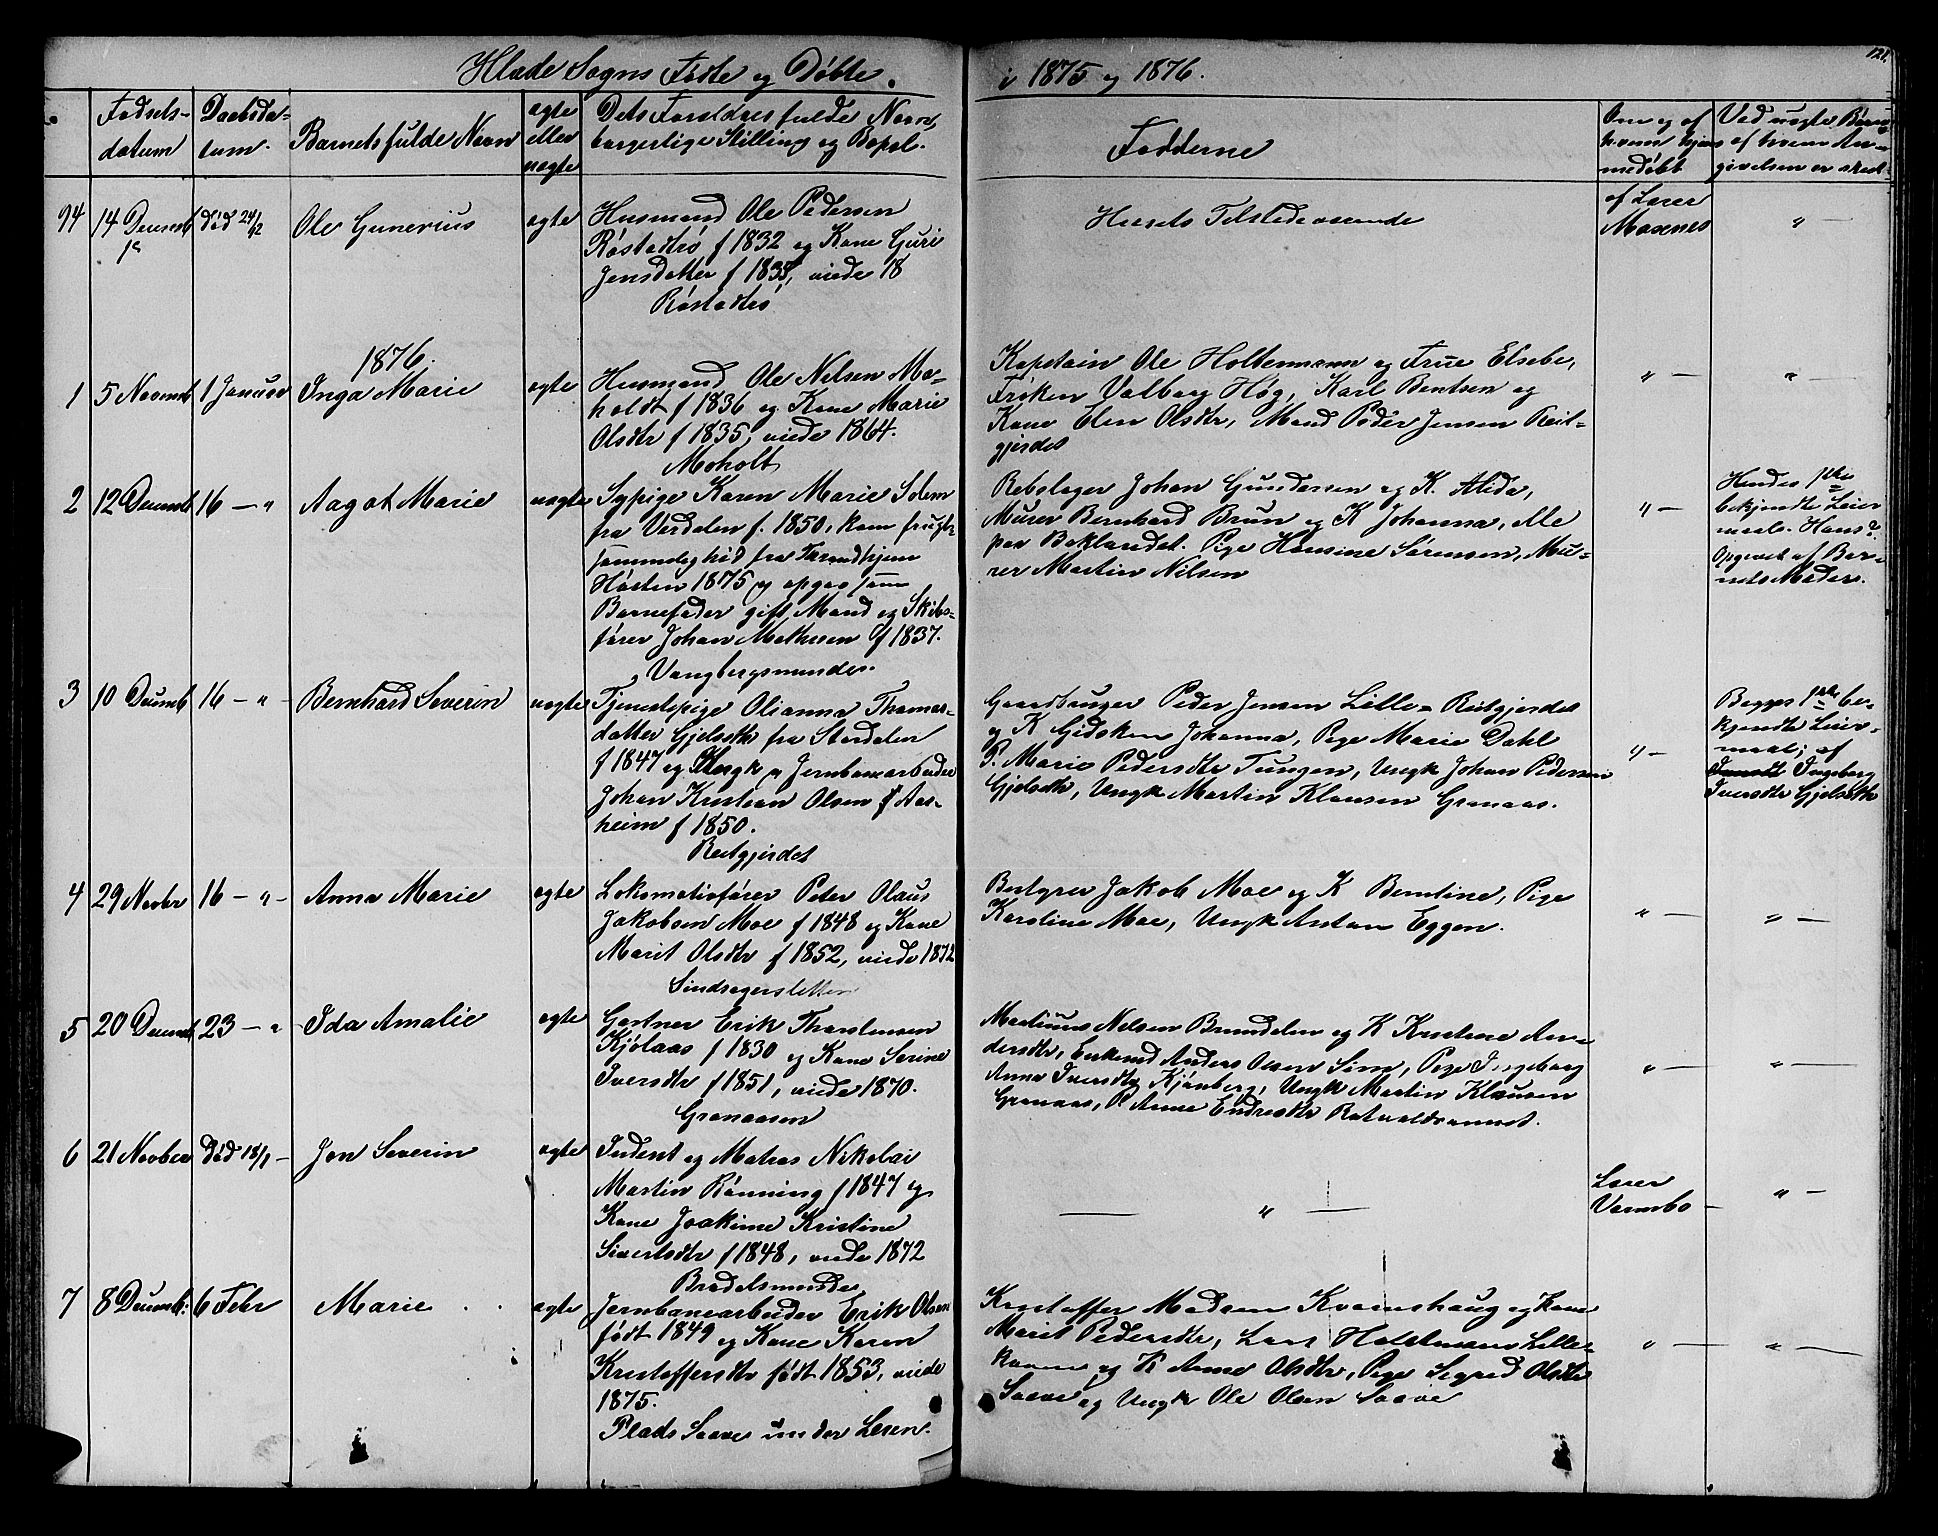 Hlade Sogns Fødte og Døbte. i 1875 og 1876. 121.
Fødsels-
datum
Daabsda-
tum.
Barnets fulde Navn
ægte
eller
uægte
Dets Forældres fulde Navn,
borgerlige Stilling og Bopæl.
Fadderne
Om og af
hvem hjem
medøbt
Ved uægte Børn
af hvem An-
givelsen er skeet
94 14 Decemb død 29/12 Ole Gunerius ægte
Husmand Ole Pedersen
Røstadtrø f 1832 og Kone Guri
Jensdatter f 1835, viede 18
Røstadtrø
Husets Tilstedeværende
af Lærer
Moxnes
" —
1876.
1 5 Novemb 1 Januar Inga Marie ægte
Husmand Ole Nilsen Mo-
holdt f 1836 og Kone Marie
Olsdtr f 1835, viede 1864.
Moholt
Kaptain Ole Holtermann og Frue Elsebe,
Frøken Valborg Høg, Karl Bentsen og
Kone Elen Olsdtr, Mand Peder Jensen Reit-
gjerdet
" — " —
2 12 Decemb 16 — " Aagot Marie uægte
Sypige Karen Marie Solem
fra Værdalen f. 1850, kom frugt-
sommelighed fra Trondhjem
Høsten 1875 og opgav som
Barnefader gift Mand og Skibs-
fører Johan Mathesen f 1837.
Vangbergsmunden.
Rebslager Johan Gundersen og K. Alida,
Murer Bernhard Brun og K Johanna, alle
paa Baklandet. Pige Hansine Sørensen, Mu-
rer Martin Nilsen
" —
Hendes 1ste
bekjendte Leier
maal. Hans ?
Opgivet af Bar-
nets Moder.
3 10 Decemb 16 — " — Bernhard Severin uægte
Tjenestepige Olianna Thomas-
datter Gjelseth fra Stordalen
f 1847 og Ungk Jernbanearbeider
Johan Kristian Olsen Aas-
heim f 1850.
Reitgjerdet
Gaardbruger Peder Jensen Lille Reitgjerdet
og K Gidsken Johanna, Pige Marie Dahl
P. Marie Pedersdtr Tungen, Ungk Johan Pedersen
Gjelseth, Ungk Martin Klausen Granaas.
" —
Begges 1ste be-
kjendte Leier-
maal; af
Ingeborg
Iversdtr Gjelseth
4 29 Novbr 16 — " — Anna Marie ægte
Lokomotivfører Peter Olaus
Jakobsen Moe f 1848 og Kone
Marit Olsdtr f 1852, viede 1872
Sindsagersletten
Bestyrer Jakob Moe og K Berntine, Pige
Karoline Moe, Ungk Anton Eggen.
" — " —
5 20 Decemb 23 — " — Ida Amalie ægte
Gartner Erik Thorstensen
Kjølaas f 1830 og Kone Serine
Iversdtr f 1851, viede 1870.
Granaasen
Martinus Nelsen Brundalen og K Kristine An-
dersdtr, Enkemd Anders Olsen Sim, Pige Ingeborg
Anna Iversdtr Kjønberg, Ungk Martin Klausen
Granaas, P. Anne Endresdtr Rotvoldsaunet.
" — " —
6 21 Novber død 18/1 — Jon Severin ægte
Inderst og Matros Nikolai
Martin Rønning f 1847 og
Kone Joakime Kristine
Sivertsdtr f 1848, viede 1872
— " —
Lærer
Værmbo —
" —
7 8 Decemb: 6 Febr Marie ægte
Jernbanearbeider Erik Olsen
født 1849 og Kone Karen
Kristoffersdtr født 1853, viede
1875.
Plads Saave under Leren.
Kristoffer Madsen Kvernhaug og Kone
Marit Pedersdtr, Lars Lille-
og K Anne Olsdtr, Pige Sigrid Olsdtr
Saave og Ungk Ole Olsen Saave
" — " —